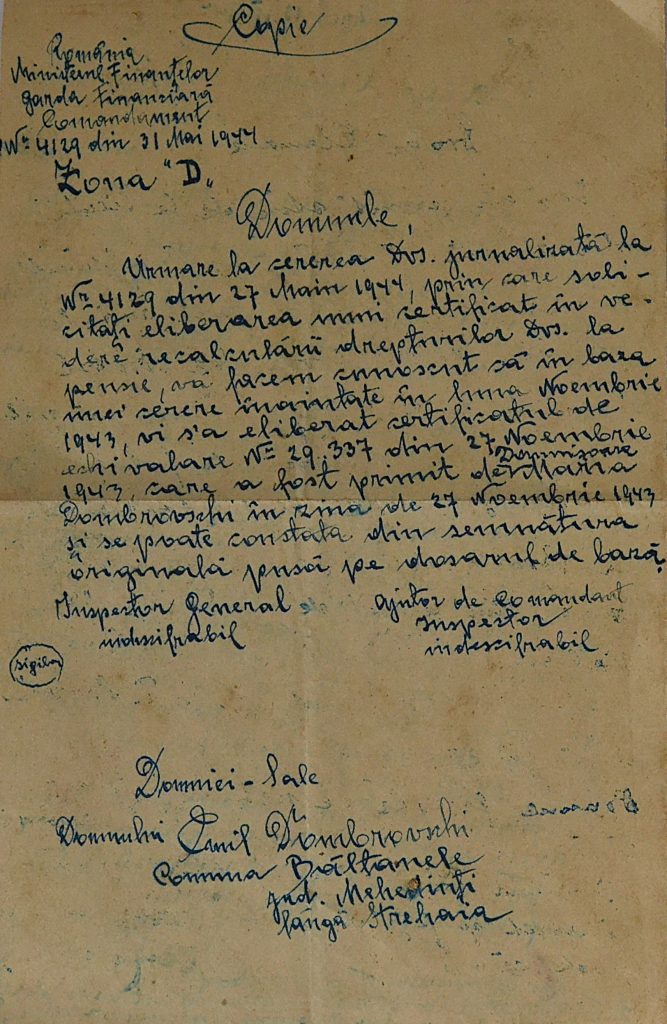 Copie
România
Ministerul Finanțelor
Garda Financiară
Comandament
Nr. 4129 din 31 Mai 1944
Zona "D"
Domnule,
Urmare la cererea Dvs. jurnalizată la
Nr. 4129 din 27 Main 1944, prin care soli-
citați eliberarea unui certificat în ve-
dere recalculării drepturilor Dvs. la
pensie, vă facem cunoscut că în baza
unei cerere înaintate în luna Noembrie
1943, vi s'a eliberat certificatul de
echivalare Nr. 29.337 din 27 Noembrie
1943, care a fost primit de Domnișoara Maria
Dombrovschi în ziua de 27 Noembrie 1943
și se poate constata din semnătura
originală pusă pe dosarul de bază.
Inspector General
indescifrabil
Ajutor de Comandant
Inspector
indescifrabil
Sigiliu
Domniei-Sale
Domnului Emil Dombrovschi
Comuna Băltanele
jud. Mehedinți
lângă Strehaia